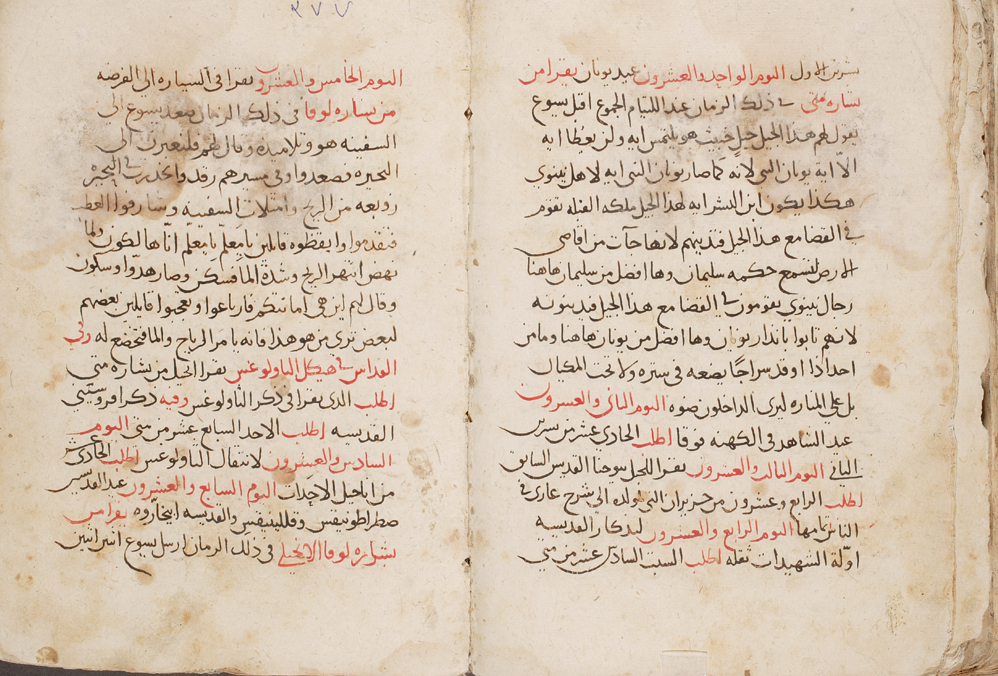 تشرين الاول اليوم الواحد والعشرون عيد يونان يقرا من
بشاره متى في ذلك الزمان عند اللتيام الجموع اقبل يسوع
يقول لهم هذا الجيل جيل خبيث هو يلتمس ايه ولن يعطا ايه
الا ايه يونان النبي لانه كما صار يونان النبي ايه لاهل نينوي
هكذا يكون ابن البشر ايه لهذا الجيل ملكه القبله تقوم
في القضا مع هذا الجيل فتدينهم لانها جات من اقاصي
الارض لتسمع حكمه سليمان وها افضل من سليمان هاهنا
رجال نينوي يقومون في القضا مع هذا الجيل فيدينونه
لانهم تابوا بانذار يونان وها افضل من يونان هاهنا وما من
احد اذا اوقد سراجا يضعه في ستره ولا تحت المكيال
بل على المناره ليرى الداخلون ضوه اليوم الثاني والعشرون
عيد الشاهد في الكهنه فوقا اطلب الحادي عشر من تشرين
الثاني اليوم الثالث والعشرون يقرا للجليل يوحنا القديس السابق
اطلب الرابع وعشرون من حزيران التي لولده الى بشرح عاري في
الناس تمامها اليوم الرابع والعشرون لتدكار القديسه
اوله الشهيدات تقله اطلب السبت السادس عشر من متى
٢٧٧
اليوم الخامس والعشرون يقرا في السياره الى الفرضه
من بشاره لوقا في ذلك الزمان صعد يسوع الى
السفينه هو وتلاميذه وقال لهم فلنعبرن الى
البحيره فصعدوا وفي مسيرهم رقد وانحدرت في البحيره
زوبعه من الريح وامتلات السفينه وشارفوا العطب
فتقدموا وايقظوه قايلين يا معلم يا معلم انا هالكون ولما
نهض انتهر الريح وشدة الما فسكن وصار هدوا وسكون
وقال لهم اين هي امانتكم فارتاعوا وتعجبوا قايلين بعضهم
لبعض ترى من هو هذا فانه يامر الرياح والما فتخضع له وفي
القداس في هيكل الثاولوغس يقرا انجيل من بشاره متى
اطلب الدي يقرا في ذكر الثاولوغس وفيه ذكر افروسيني
القديسه اطلب الاحد السابع عشر من متى اليوم
السادس والعشرون لانتقال الثاولوغس اطلب الحادي عشر
من اناجيل الاحداث اليوم السابع والعشرون عيد القديس
صطراطونيقس وقللينيقس والقديسه ايتخاروه يقرا من
بشاره لوقا الانجيلي في ذلك الزمان ارسل يسوع اثنين اثنين